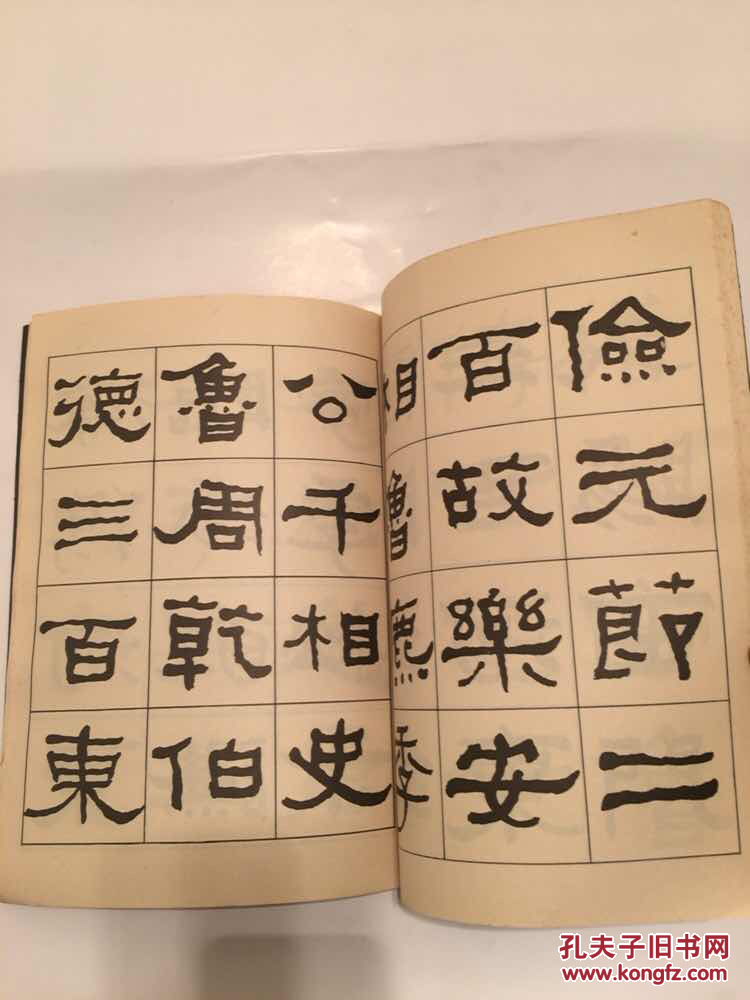 儉元節二
百故樂安
相魯麃季
公千相史
魯周乾伯
德三百東
孔夫子旧书网
www.kongfz.com